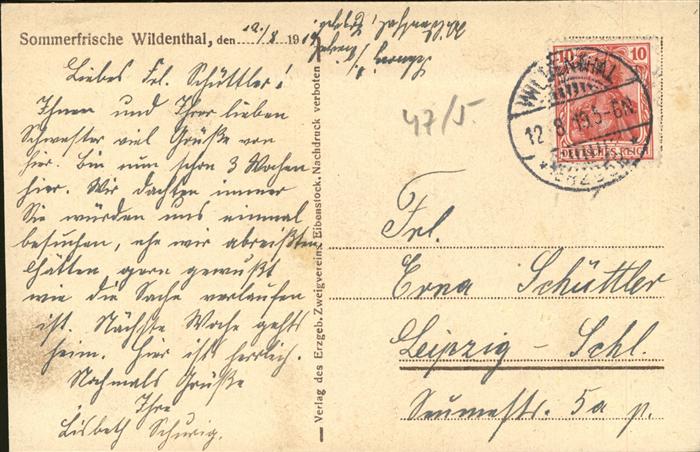 Sommerfrische Wildenthal, den 12./8 191
Liebes Frl. Schüttler!
Ihnen und Ihrer lieben
Schwester viel Grüße von
hier. Bin nun schon 3 Wochen
hier. Wir dachten immer
Sie würden uns einmal
besuchen, ehe wir abreißten
Hätten gern gewußt
wie die Sache verlaufen
ist. Nächste Woche gehts
heim. Hier ists herrlich.
Nochmals Grüße
Ihre
Lisbeth Schurig.
Verlag des Erzgeb. Zweigvereins Eibenstock. Nachdruck verboten
47/5.
10 10
DEUTSCHES REICH
WILDENTHAL
12 8 15.5-6N
Frl.
Erna Schüttler
Leipzig - Schl.
Seumestr. 5a p.